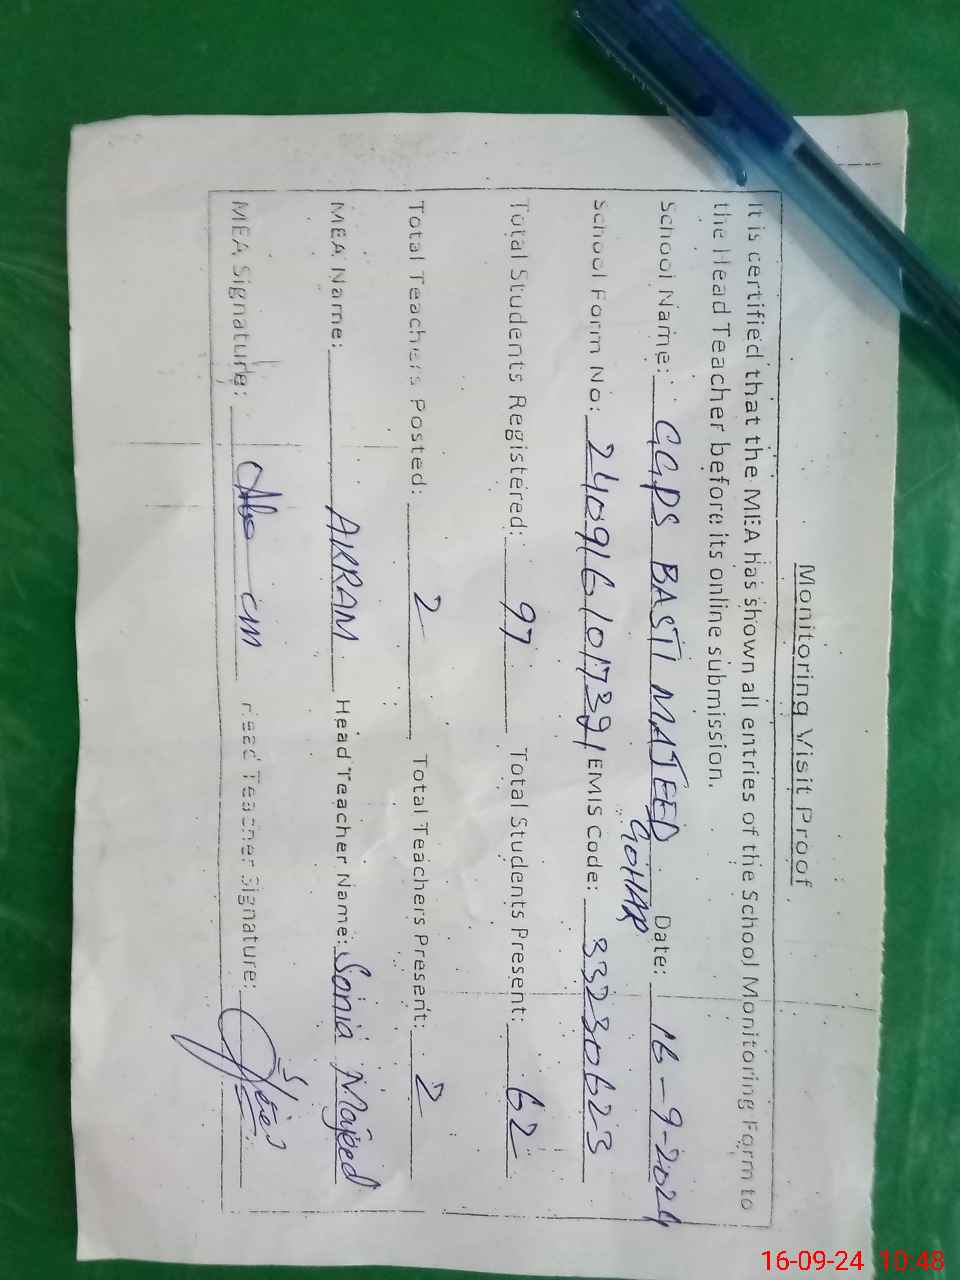 Monitoring Visit Proof
It is certified that the MEA has shown all entries of the School Monitoring Form to
the Head Teacher before its online submission.
School Name: GGPS BASTI MAJEED GOHAR Date: 16-9-2024
School Form No: EMIS Code: 33230623
Total Students Registered: 97 Total Students Present: 62
Total Teachers Posted: 2 Total Teachers Present: 2
MEA Name: AKRAM Head Teacher Name: Sonia Majeed
MEA Signature: Head Teacher Signature:
16-09-24 10:48